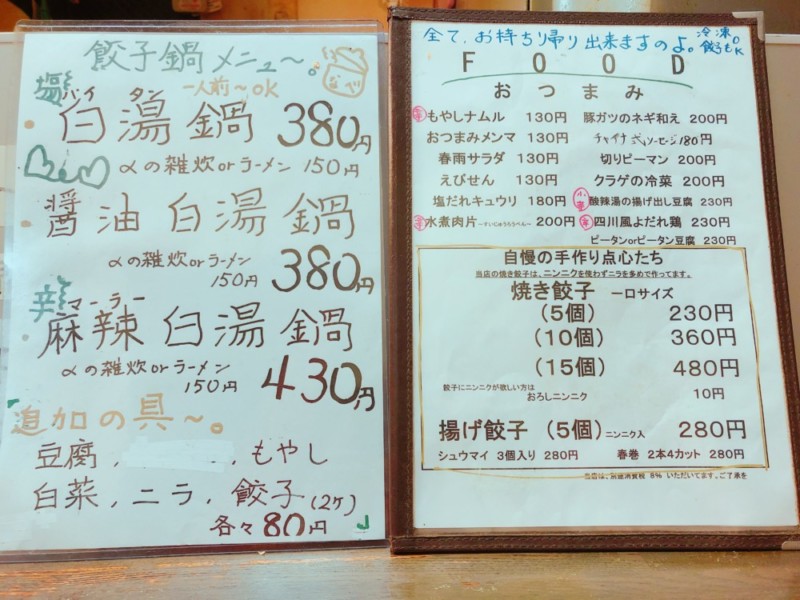 餃子鍋メニュー〜。
なべ
塩
一人前〜OK
パイタン
白湯鍋 380円
〆の雑炊orラーメン 150円
醤油白湯鍋
〆の雑炊orラーメン
150円 380円
辛
マーラー
麻辣白湯鍋
〆の雑炊orラーメン
150円 430円
追加の具〜。
豆腐, , もやし
白菜, ニラ, 餃子(2ケ)
各々80円
全て、お持ち帰り出来ますのよ。冷凍。
餃子もOK
FOOD
おつまみ
辛 もやしナムル 130円 豚ガツのネギ和え 200円
おつまみメンマ 130円 チャイナ式ソーセージ180円
春雨サラダ 130円 切りピーマン 200円
えびせん 130円 クラゲの冷菜 200円
塩だれキュウリ 180円 小辛 酸辣湯の揚げ出し豆腐 230円
辛 水煮肉片〜すいじゅうろうぺん〜 200円 辛 四川風よだれ鶏 230円
ピータンorピータン豆腐 230円
自慢の手作り点心たち
当店の焼き餃子は、ニンニクを使わずニラを多めで作ってます。
焼き餃子 一口サイズ
(5個) 230円
(10個) 360円
(15個) 480円
餃子にニンニクが欲しい方は
おろしニンニク 10円
揚げ餃子 (5個) ニンニク入 280円
シュウマイ 3個入り 280円 春巻 2本4カット 280円
当店は、別途消費税 8% いただいてます。ご了承を